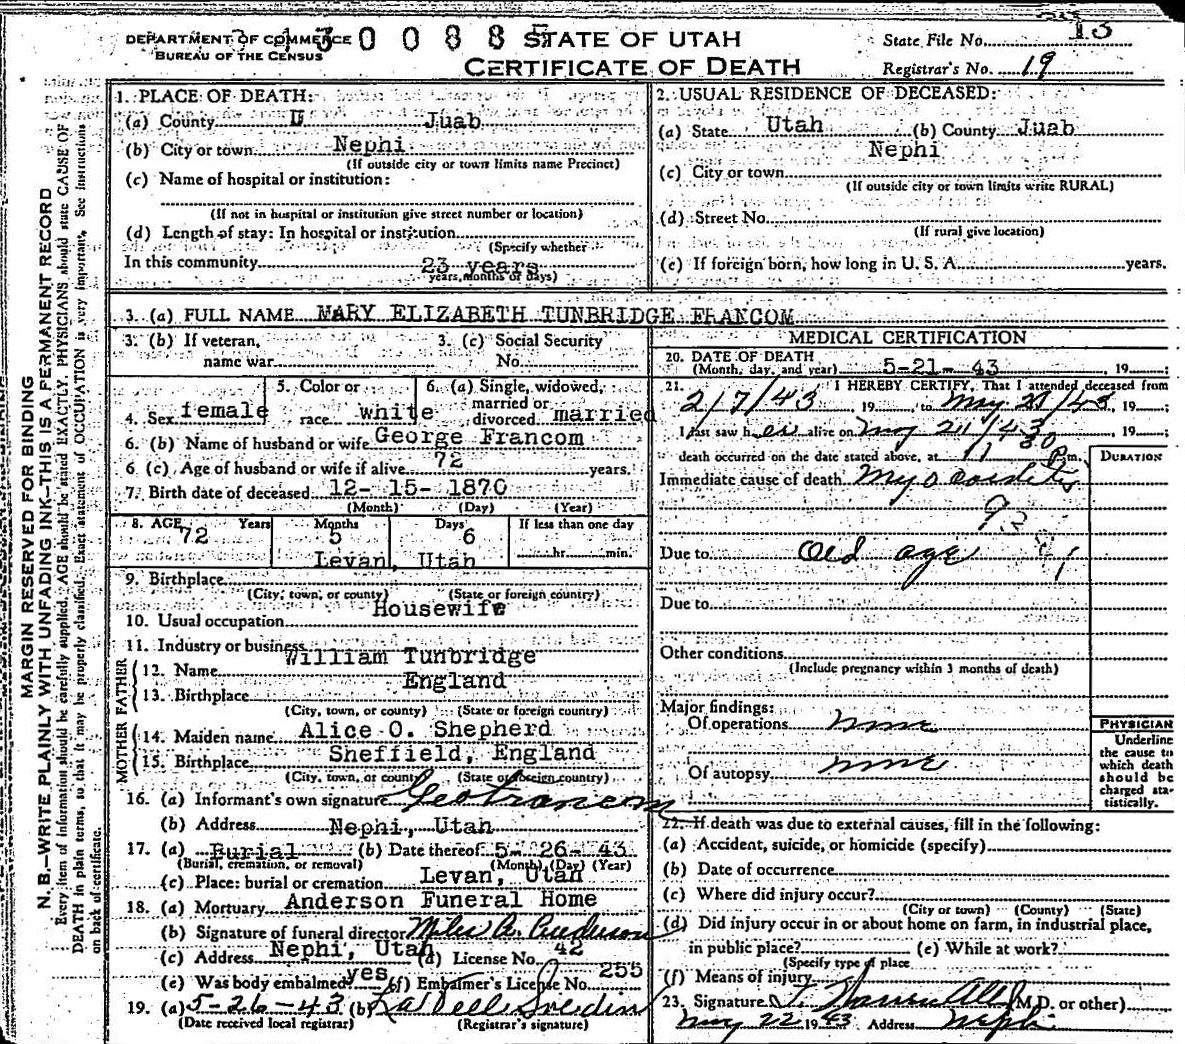 DEPARTMENT OF COMMERCE
BUREAU OF THE CENSUS
3 0 0 8 8
STATE OF UTAH
CERTIFICATE OF DEATH
State File No. 13
Registrar's No. 19
MARGIN RESERVED FOR BINDING
N. B.—WRITE PLAINLY WITH UNFADING INK—THIS IS A PERMANENT RECORD
Every item of information should be carefully supplied. AGE should be stated EXACTLY. PHYSICIANS should state CAUSE OF
DEATH in plain terms, so that it may be properly classified. Exact statement of OCCUPATION is very important. See instructions
on back of certificate.
1. PLACE OF DEATH:
(a) County Juab
(b) City or town Nephi
(If outside city or town limits name Precinct)
(c) Name of hospital or institution:
(If not in hospital or institution give street number or location)
(d) Length of stay: In hospital or institution
(Specify whether
In this community 23 years
years, months or days)
2. USUAL RESIDENCE OF DECEASED:
(a) State Utah (b) County Juab
Nephi
(c) City or town
(If outside city or town limits write RURAL)
(d) Street No.
(If rural give location)
(e) If foreign born, how long in U. S. A. years.
3. (a) FULL NAME MARY ELIZABETH TUNBRIDGE FRANCOM
3. (b) If veteran, name war
3. (c) Social Security No.
4. Sex female
5. Color or race white
6. (a) Single, widowed, married or divorced married
6. (b) Name of husband or wife George Francom
6. (c) Age of husband or wife if alive 72 years.
7. Birth date of deceased 12- 15- 1870
(Month) (Day) (Year)
8. AGE Years Months Days If less than one day
72 5 6 hr. min.
Levan, Utah
9. Birthplace
(City, town, or county) (State or foreign country)
Housewife
10. Usual occupation
11. Industry or business
FATHER
12. Name William Tunbridge
13. Birthplace England
(City, town, or county) (State or foreign country)
MOTHER
14. Maiden name Alice O. Shepherd
15. Birthplace Sheffield, England
(City, town, or county) (State or foreign country)
16. (a) Informant's own signature Geo Francom
(b) Address Nephi, Utah
17. (a) Burial (b) Date thereof 5- 26- 43
(Burial, cremation, or removal) (Month) (Day) (Year)
(c) Place: burial or cremation Levan, Utah
18. (a) Mortuary Anderson Funeral Home
(b) Signature of funeral director Miles A. Anderson
(c) Address Nephi, Utah (d) License No. 42
(e) Was body embalmed yes (f) Embalmer's License No. 255
19. (a) 5-26-43 (b)
(Date received local registrar) (Registrar's signature)
MEDICAL CERTIFICATION
20. DATE OF DEATH
(Month, day, and year) 5-21- 43, 19
21. I HEREBY CERTIFY, That I attended deceased from
2/7/43, 19, to May 21/43, 19;
I last saw her alive on May 21/43, 19;
death occurred on the date stated above, at 11 30 P.m.
DURATION
Immediate cause of death Myocarditis
Due to Old age
Due to
Other conditions
(Include pregnancy within 3 months of death)
Major findings:
Of operations none
Of autopsy none
PHYSICIAN
Underline
the cause to
which death
should be
charged sta-
tistically.
22. If death was due to external causes, fill in the following:
(a) Accident, suicide, or homicide (specify)
(b) Date of occurrence
(c) Where did injury occur?
(City or town) (County) (State)
(d) Did injury occur in or about home on farm, in industrial place,
in public place? (e) While at work?
(Specify type of place
(f) Means of injury
23. Signature (M.D. or other)
May 22 1943 Address Nephi